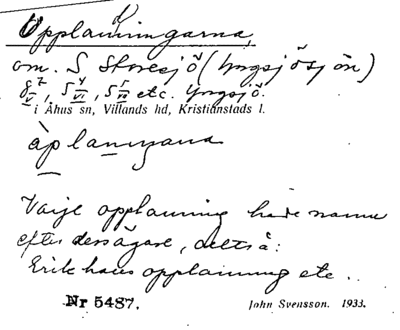 Opplanningarna,
om. S Storesjö (Yngsjösjön)
etc. Yngsjö.
i Åhus sn, Villands hd, Kristianstads l.
Varje opplanning hade namn
efter dess ägare, alltså:
Erikhans opplanning etc..
Nr 5487.
John Svensson. 1933.